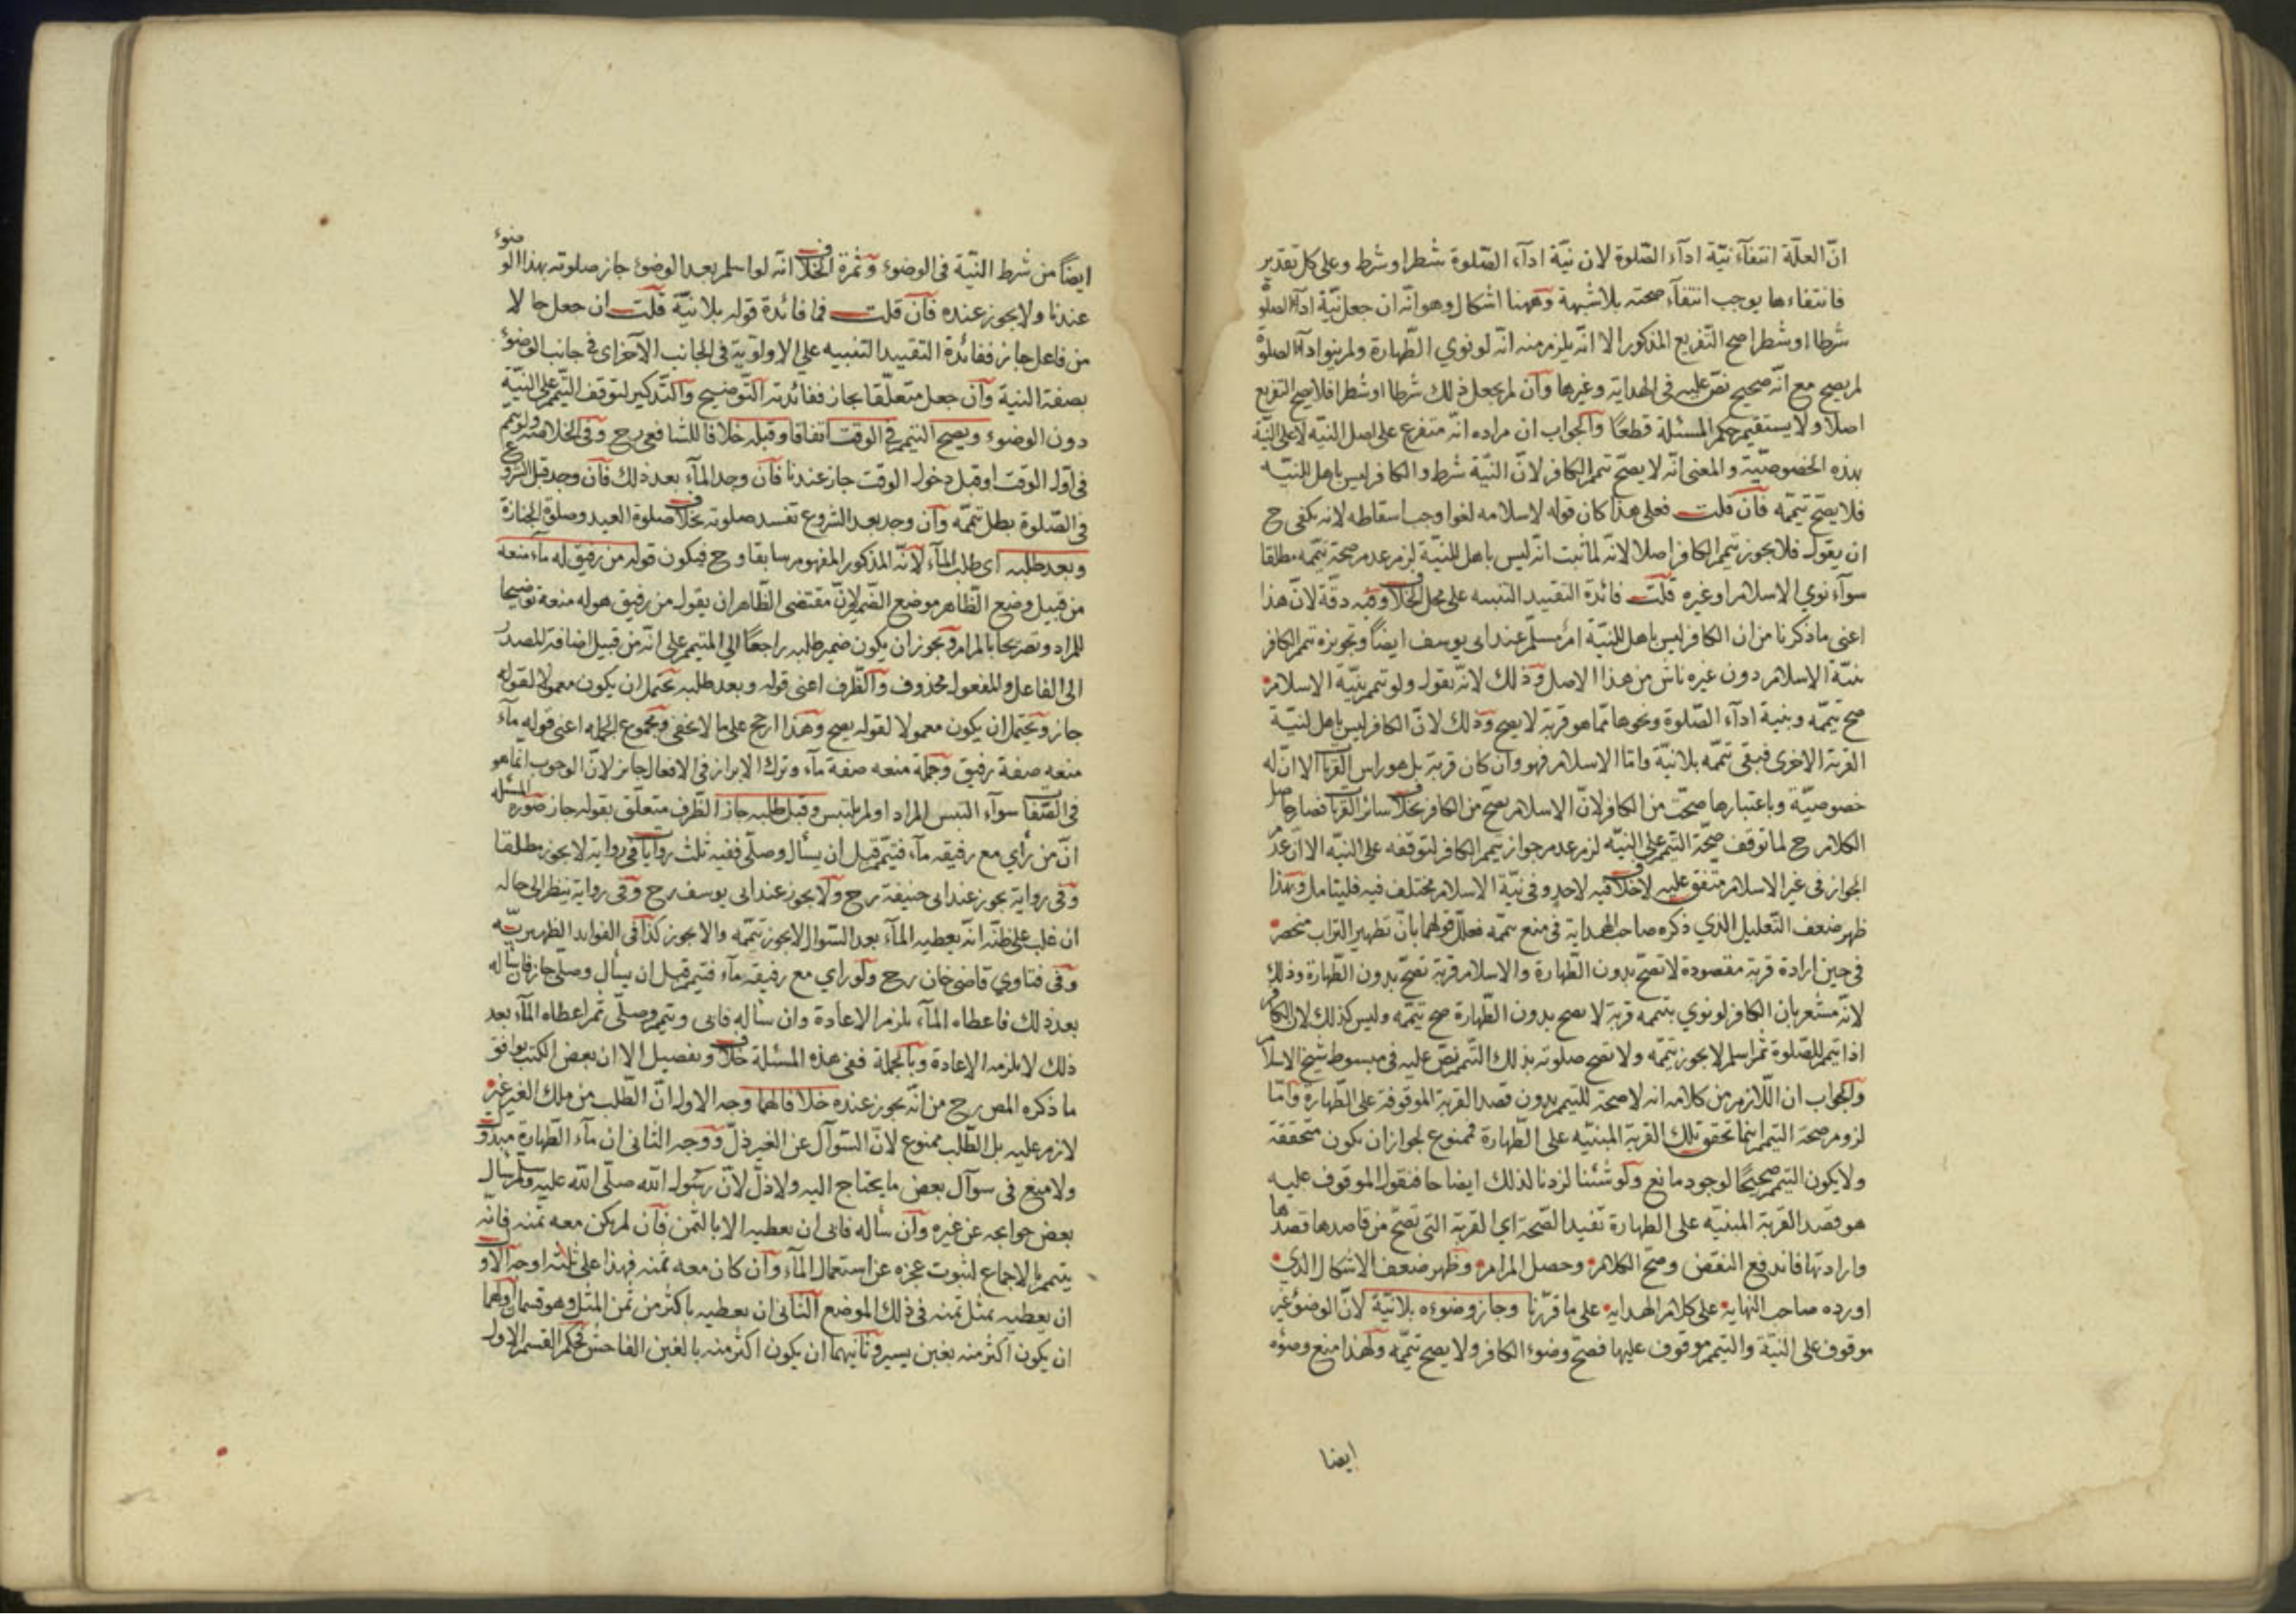 انّ العلّة انتفآء نيّة ادآء الصّلوة لان نيّة ادآء الصّلوة شطرا وشرط وعلى كل تقدير
فانتفاءها يوجب انتفآء صحته بلا شبهة وههنا اشكال وهو انّه ان جعل نيّة ادآء الصلوة
شرطا او شطرا صح التفريع المذكور الا انّه يلزم منه انه لو نوي الطّهارة ولم ينو ادآء الصلوة
لم يصح مع انّه صحيح نصّ عليه فى الهداية وغيرها وآن لم يجعل ذلك شرطا او شطرا فلا يصح التفريع
اصلا ولا يستقيم حكم المسئلة قطعًا وآلجواب ان مراده انّه متفرع على اصل النيّة لا على النيّة
بهذه الخصوصيّة والمعنى انّه لا يصحّ تيمم الكافر لانّ النيّة شرط والكافر ليس باهل للنيّة
فلا يصحّ تيمّمه فآن قلت فعلى هذا كان قوله لاسلامه لغوا وجب اسقاطه لانه يكفى ح
ان يقول فلا يجوز تيمم الكافر اصلا لانّه لما ثبت انّه ليس باهل للنيّة لزم عدم صحة تيمّمه مطلقا
سوآء نوي الاسلام او غيره قلت فائدة التقييد التنبيه على محل الخلاف وفيه دقّة لانّ هذا
اعنى ما ذكرنا من ان الكافر ليس باهل للنيّة امر مسلّم عند ابى يوسف ايضاً وتجويزه تيمم الكافر
بنيّة الاسلام دون غيره ناش من هذا الاصل وذلك لانّه يقول ولو تيمم بنيّة الاسلام
صح تيمّمه وبنية ادآء الصّلوة ونحوها ممّا هو قربة لا يصح وذلك لانّ الكافر ليس باهل لنيّة
القربة الاخرى فبقى تيممه بلا نيّة وامّا الاسلام فهو وان كان قربة بل هو راس القربات الا انّ له
خصوصيّة وباعتبارها صحّت من الكافر لانّ الاسلام يصحّ من الكافر بخلاف سائر القربات فصار حاصل
الكلام ح لما توقف صحّة التيمم على النيّة لزم عدم جواز تيمم الكافر لتوقفه على النيّة الا انّ عدم
الجواز فى غير الاسلام متفق عليه لا خلاف فيه لاحد وفى نيّة الاسلام مختلف فيه فليتامل وبهذا
ظهر ضعف التّعليل الذي ذكره صاحب الهداية فى منع تيممه فعلّل قولهما بانّ تطهير التراب منحصر
فى حين ارادة قربة مقصودة لا تصحّ بدون الطّهارة والاسلام قربة تصحّ بدون الطّهارة وذلك
لانّه مشعر بان الكافر لو نوي بتيممه قربة لا تصح بدون الطّهارة صح تيمّمه وليس كذلك لان الكافر
اذا تيمم للصّلوة ثمّ اسلم لا يجوز تيمّمه ولا تصح صلوته بذلك التّيمم نصّ عليه فى مبسوط شيخ الاسلام
وآلجواب ان اللّازم من كلامه انه لا صحة للتيمم بدون قصد القربة الموقوفة على الطّهارة وآمّا
لزوم صحة التيمم اينما تحقق تلك القربة المبنيّه على الطّهارة فممنوع لجواز ان يكون متحققة
ولا يكون التيمم صحيحًا لوجود مانع ولو شئنا لزدنا لذلك ايضاحا فنقول الموقوف عليه
هو قصد القربة المبنيّه على الطهارة تفيد الصّحة اي القربة التى تصحّ من قاصدها قصدها
وارادتها فاندفع النقض وصحّ الكلام وحصل المرام وظهر ضعف الاشكال الذي
اورده صاحب النهاية على كلام الهداية على ما قرّرنا وجاز وضوءه بلا نيّة لانّ الوضوء غير
موقوف على النيّة والتيمم موقوف عليها فصحّ وضوء الكافر ولا يصح تيمّمه ولهذا منع وضوءه
ايضا
ايضاً من شرط النيّة فى الوضوء وثمرة الخلاف انّه لو اسلم بعد الوضوء جاز صلوته بهذا الوضوء
عندنا ولا يجوز عنده فآن قلت فما فائدة قوله بلا نيّة قلت ان جعل حالا
من فاعل جاز ففائدة التقييد التنبيه على الاولوية فى الجانب الآخر اى فى جانب الوضوء
بصفة النية وآن جعل متعلّقا بجاز ففائدته التّوضيح وآلتّذكير لتوقف التّيمم على النيّة
دون الوضوء ويصح التيمم فى الوقت اتفاقا وقبله خلافا للشافعى رح وفى الخلاصة ولو تيمم
فى اوّل الوقت او قبل دخول الوقت جاز عندنا فآن وجد المآء بعد ذلك فآن وجد قبل الشروع
فى الصّلوة بطل تيمّمه وآن وجد بعد الشروع تفسد صلوته بخلاف صلوة العيد وصلوة الجنازة
وبعد طلبه اى طلب المآء لآنّه المذكور المفهوم سابقا وح فيكون قوله من رفيق له مآء منعه
من قبيل وضع الظّاهر موضع الضّمير لانّ مقتضى الظّاهر ان يقول من رفيق هو له منعه توضيحا
للمراد وتصريحا بالمرام ويجوز ان يكون ضمير طلبه راجعًا الى المتيمم على انّه من قبيل اضافة المصدر
الى الفاعل والمفعول محذوف وآلظّرف اعنى قوله وبعد طلبه يحتمل ان يكون معمولا لقوله
جاز ويحتمل ان يكون معمولا لقوله يصح وهذا ارجح على ما لا يخفى ومجموع الجمله اعنى قوله مآء
منعه صفة رفيق وجملة منعه صفة مآء وترك الابراز فى الافعال جائز لانّ الوجوب انما هو
فى الصّفات سوآء التبس المراد او لم يلتبس وقبل طلبه جاز الظّرف متعلّق بقوله جاز صورة المسئلة
انّ من رأي مع رفيقه مآء فتيمّم قبل ان يسأل وصلّى ففيه ثلث روايات فى رواية لا يجوز مطلقا
وفى رواية يجوز عند ابى حنيفة رح ولا يجوز عند ابى يوسف رح وفى رواية ينظر الى حاله
ان غلب على ظنّه انّه يعطيه المآء بعد السّوال لا يجوز تيمّمه والا يجوز كذا فى الفوايد الظهيريّه
وفى فتاوي قاضى خان رح ولو راي مع رفيقه مآء فتيمم قبل ان يسأل وصلى جاز فان سأله
بعد ذلك فاعطاه المآء يلزم الاعادة وان سأله فابى وتيمم وصلّى ثم اعطاه المآء بعد
ذلك لا يلزمه الاعادة وبالجملة ففى هذه المسئلة خلاف وتفصيل الا ان بعض الكتب يوافق
ما ذكره المص رح من انّه يجوز عنده خلافا لهما وجه الاول انّ الطّلب من ملك الغير غير
لازم عليه بل الطّلب ممنوع لانّ السّوآل عن الغير ذلّ ووجه الثانى ان مآء الطّهارة مبذول
ولا منع فى سوآل بعض ما يحتاج اليه ولا ذلّ لانّ رسُول الله صلّى الله عليه وسلّم سأل
بعض حوايجه عن غيره وآن سأله فابى ان يعطيه الا بالثمن فآن لم يكن معه ثمنه فانّه
يتيمم بالاجماع لثبوت عجزه عن استعمال المآء وآن كان معه ثمنه فهذا على ثلثه اوجه الآول
ان يعطيه بمثل ثمنه فى ذلك الموضع آلثانى ان يعطيه باكثر من ثمن المثل وهو قسمان اولهما
ان يكون اكثر منه بغبن يسير وثانيهما ان يكون اكثر منه بالغبن الفاحش فحكم القسم الاول